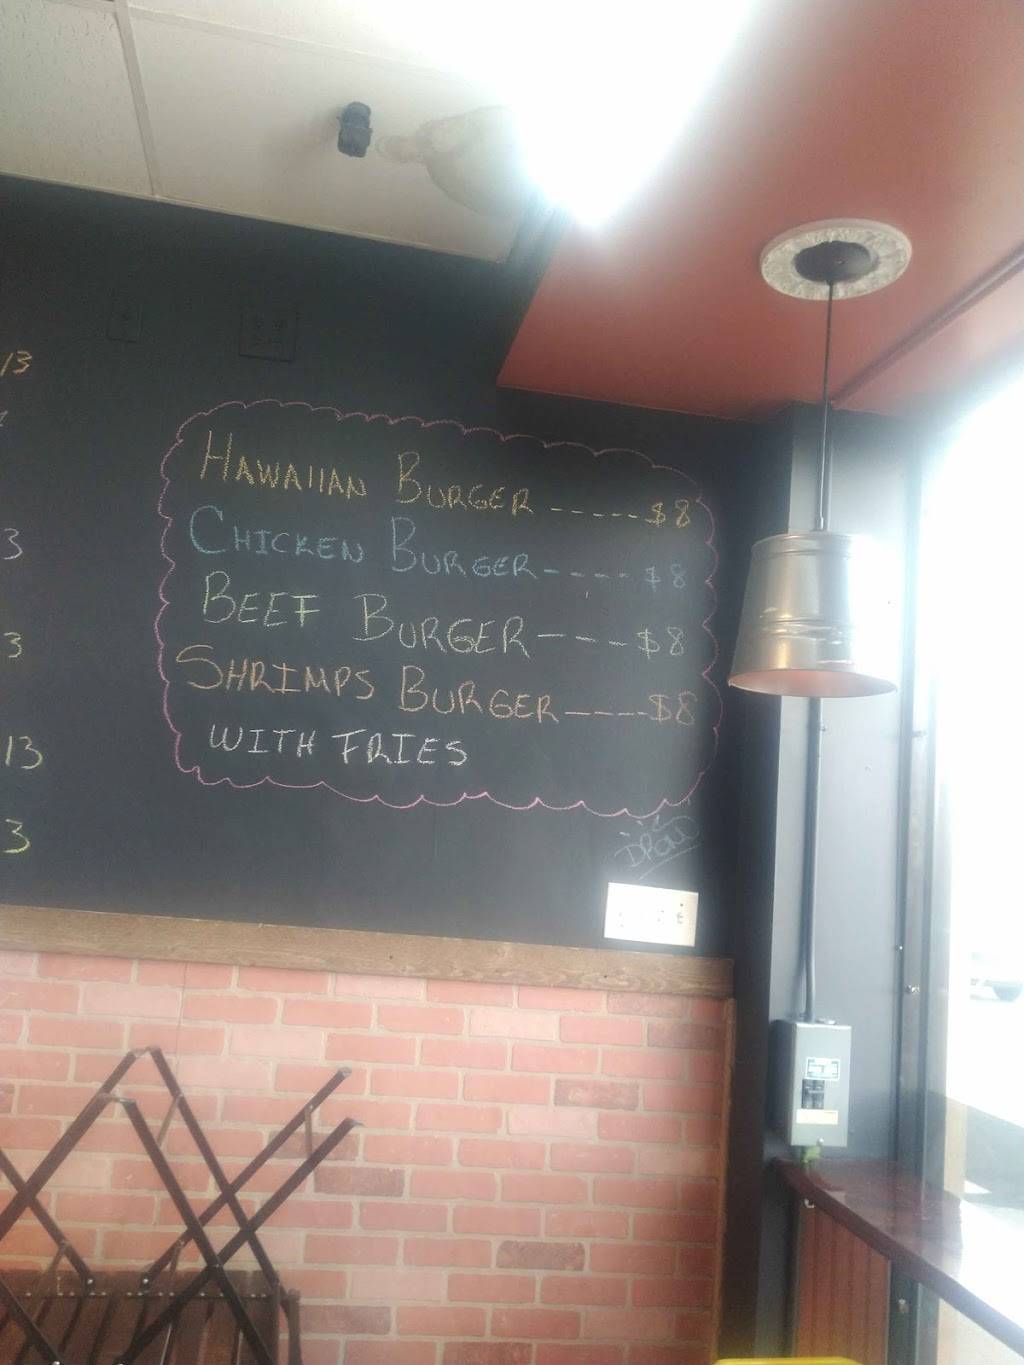 13
3
3
13
3
HAWAIIAN BURGER -----$8
CHICKEN BURGER---- $8
BEEF BURGER----$8
SHRIMPS BURGER----$8
WITH FRIES